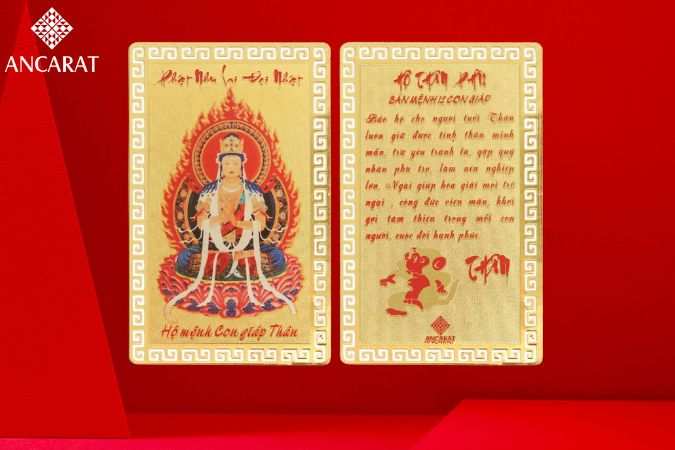 ANCARAT
Phật Như Lai Đại Nhật
Hộ mệnh Con giáp Thân
HỘ THÂN PHẬT
BẢN MỆNH 12 CON GIÁP
Bảo hộ cho người tuổi Thân
luôn giữ được tinh thần minh
mẫn, trừ yêu tránh tà, gặp quý
nhân phù trợ, làm ăn nghiệp
lớn. Ngài giúp hóa giải mọi trở
ngại, công đức viên mãn, khơi
gợi tâm thiện trong mỗi con
người, cuộc đời hạnh phúc.
THÂN
ANCARAT